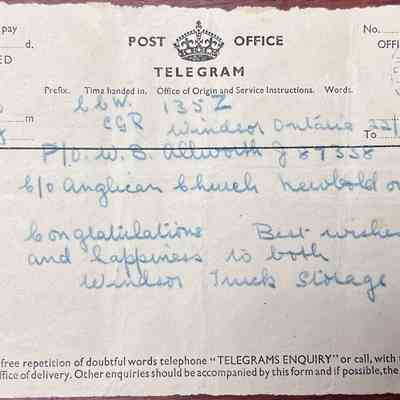 pay
d.
POST OFFICE
No.
OFFI
ED
TELEGRAM
Prefix. Time handed in. Office of Origin and Service Instructions. Words.
135Z
m
CGR Windsor Ontario 22/
To
P/O. W. B. Allworth J 89338
c/o Anglican Church Newbold on
Congratulations Best wishes
and happiness to both
Windsor Truck Storage
free repetition of doubtful words telephone "TELEGRAMS ENQUIRY" or call, with
ffice of delivery. Other enquiries should be accompanied by this form and if possible, the